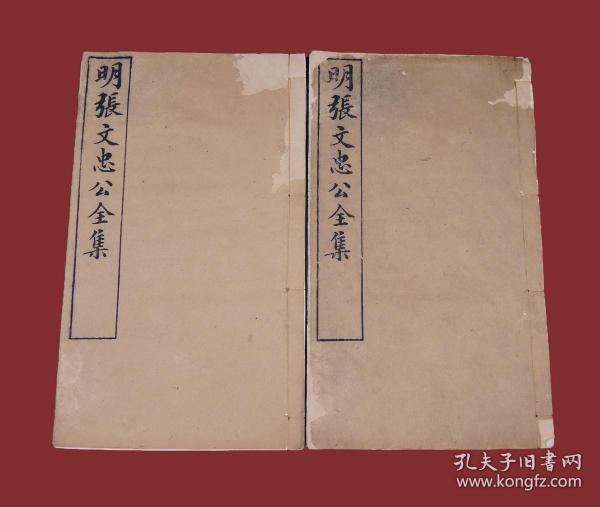 明張文忠公全集
明張文忠公全集
孔夫子旧書网
www.kongfz.com